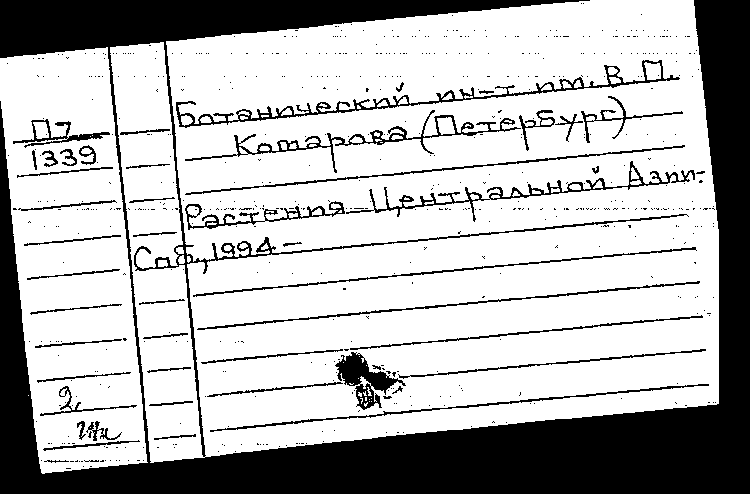 П7
1339
Ботанический ин-т им. В.П.
Комарова (Петербург)
Растения Центральной Азии.-
Спб., 1994 -
2.